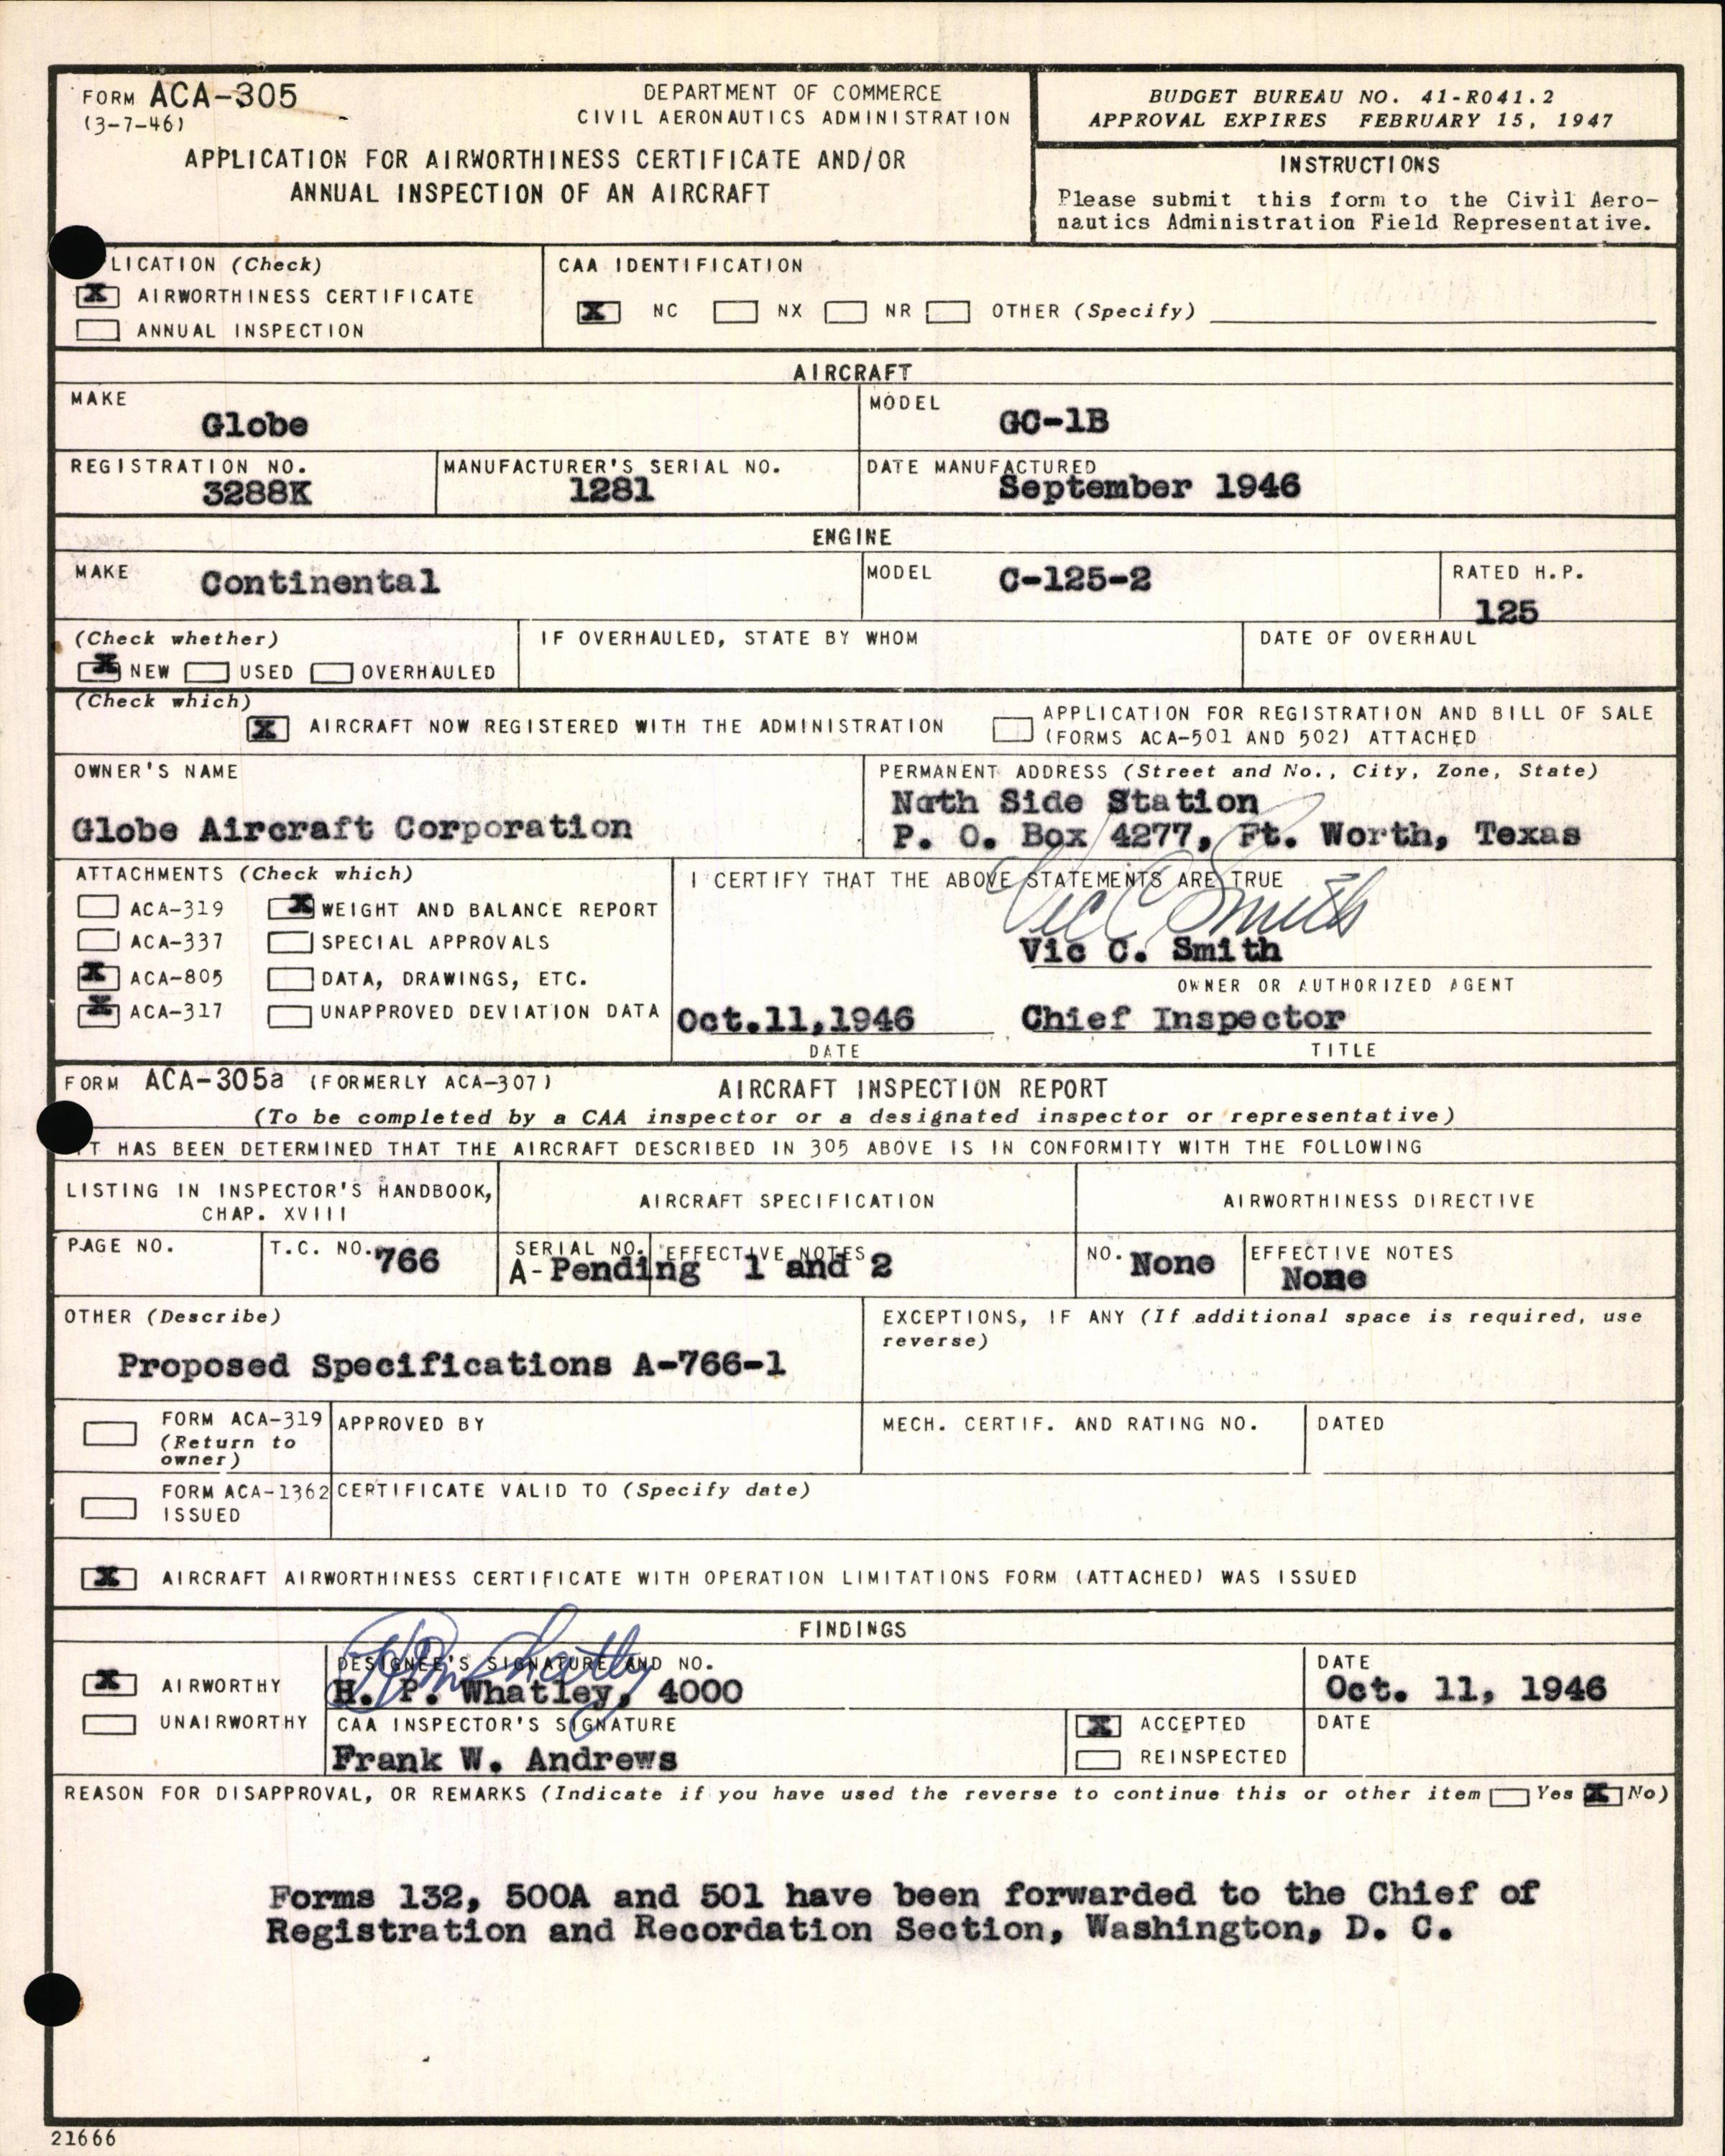 FORM ACA-305
(3-7-46)
DEPARTMENT OF COMMERCE
CIVIL AERONAUTICS ADMINISTRATION
APPLICATION FOR AIRWORTHINESS CERTIFICATE AND/OR
ANNUAL INSPECTION OF AN AIRCRAFT
BUDGET BUREAU NO. 41-R041.2
APPROVAL EXPIRES FEBRUARY 15, 1947
INSTRUCTIONS
Please submit this form to the Civil Aero-
nautics Administration Field Representative.
LICATION (Check)
X AIRWORTHINESS CERTIFICATE
ANNUAL INSPECTION
CAA IDENTIFICATION
X NC NX NR OTHER (Specify)
AIRCRAFT
MAKE
Globe
MODEL
GC-1B
REGISTRATION NO.
3288K
MANUFACTURER'S SERIAL NO.
1281
DATE MANUFACTURED
September 1946
ENGINE
MAKE
Continental
MODEL
C-125-2
RATED H.P.
125
(Check whether)
X NEW USED OVERHAULED
IF OVERHAULED, STATE BY WHOM
DATE OF OVERHAUL
(Check which)
X AIRCRAFT NOW REGISTERED WITH THE ADMINISTRATION
APPLICATION FOR REGISTRATION AND BILL OF SALE
(FORMS ACA-501 AND 502) ATTACHED
OWNER'S NAME
Globe Aircraft Corporation
PERMANENT ADDRESS (Street and No., City, Zone, State)
North Side Station
P. O. Box 4277, Ft. Worth, Texas
ATTACHMENTS (Check which)
ACA-319 X WEIGHT AND BALANCE REPORT
ACA-337 SPECIAL APPROVALS
X ACA-805 DATA, DRAWINGS, ETC.
X ACA-317 UNAPPROVED DEVIATION DATA
I CERTIFY THAT THE ABOVE STATEMENTS ARE TRUE
Vic C Smith
Vic C. Smith
OWNER OR AUTHORIZED AGENT
Oct.11,1946 Chief Inspector
DATE TITLE
FORM ACA-305a (FORMERLY ACA-307) AIRCRAFT INSPECTION REPORT
(To be completed by a CAA inspector or a designated inspector or representative)
IT HAS BEEN DETERMINED THAT THE AIRCRAFT DESCRIBED IN 305 ABOVE IS IN CONFORMITY WITH THE FOLLOWING
LISTING IN INSPECTOR'S HANDBOOK,
CHAP. XVIII
AIRCRAFT SPECIFICATION
AIRWORTHINESS DIRECTIVE
PAGE NO.
T.C. NO. 766
SERIAL NO. EFFECTIVE NOTES
A-Pending 1 and 2
NO. None
EFFECTIVE NOTES
None
OTHER (Describe)
Proposed Specifications A-766-1
EXCEPTIONS, IF ANY (If additional space is required, use
reverse)
FORM ACA-319
(Return to
owner)
APPROVED BY
MECH. CERTIF. AND RATING NO.
DATED
FORM ACA-1362
ISSUED
CERTIFICATE VALID TO (Specify date)
X AIRCRAFT AIRWORTHINESS CERTIFICATE WITH OPERATION LIMITATIONS FORM (ATTACHED) WAS ISSUED
FINDINGS
X AIRWORTHY
UNAIRWORTHY
DESIGNEE'S SIGNATURE AND NO.
HP Whatley
H. P. Whatley, 4000
DATE
Oct. 11, 1946
CAA INSPECTOR'S SIGNATURE
Frank W. Andrews
X ACCEPTED
REINSPECTED
DATE
REASON FOR DISAPPROVAL, OR REMARKS (Indicate if you have used the reverse to continue this or other item Yes X No)
Forms 132, 500A and 501 have been forwarded to the Chief of
Registration and Recordation Section, Washington, D. C.
21666